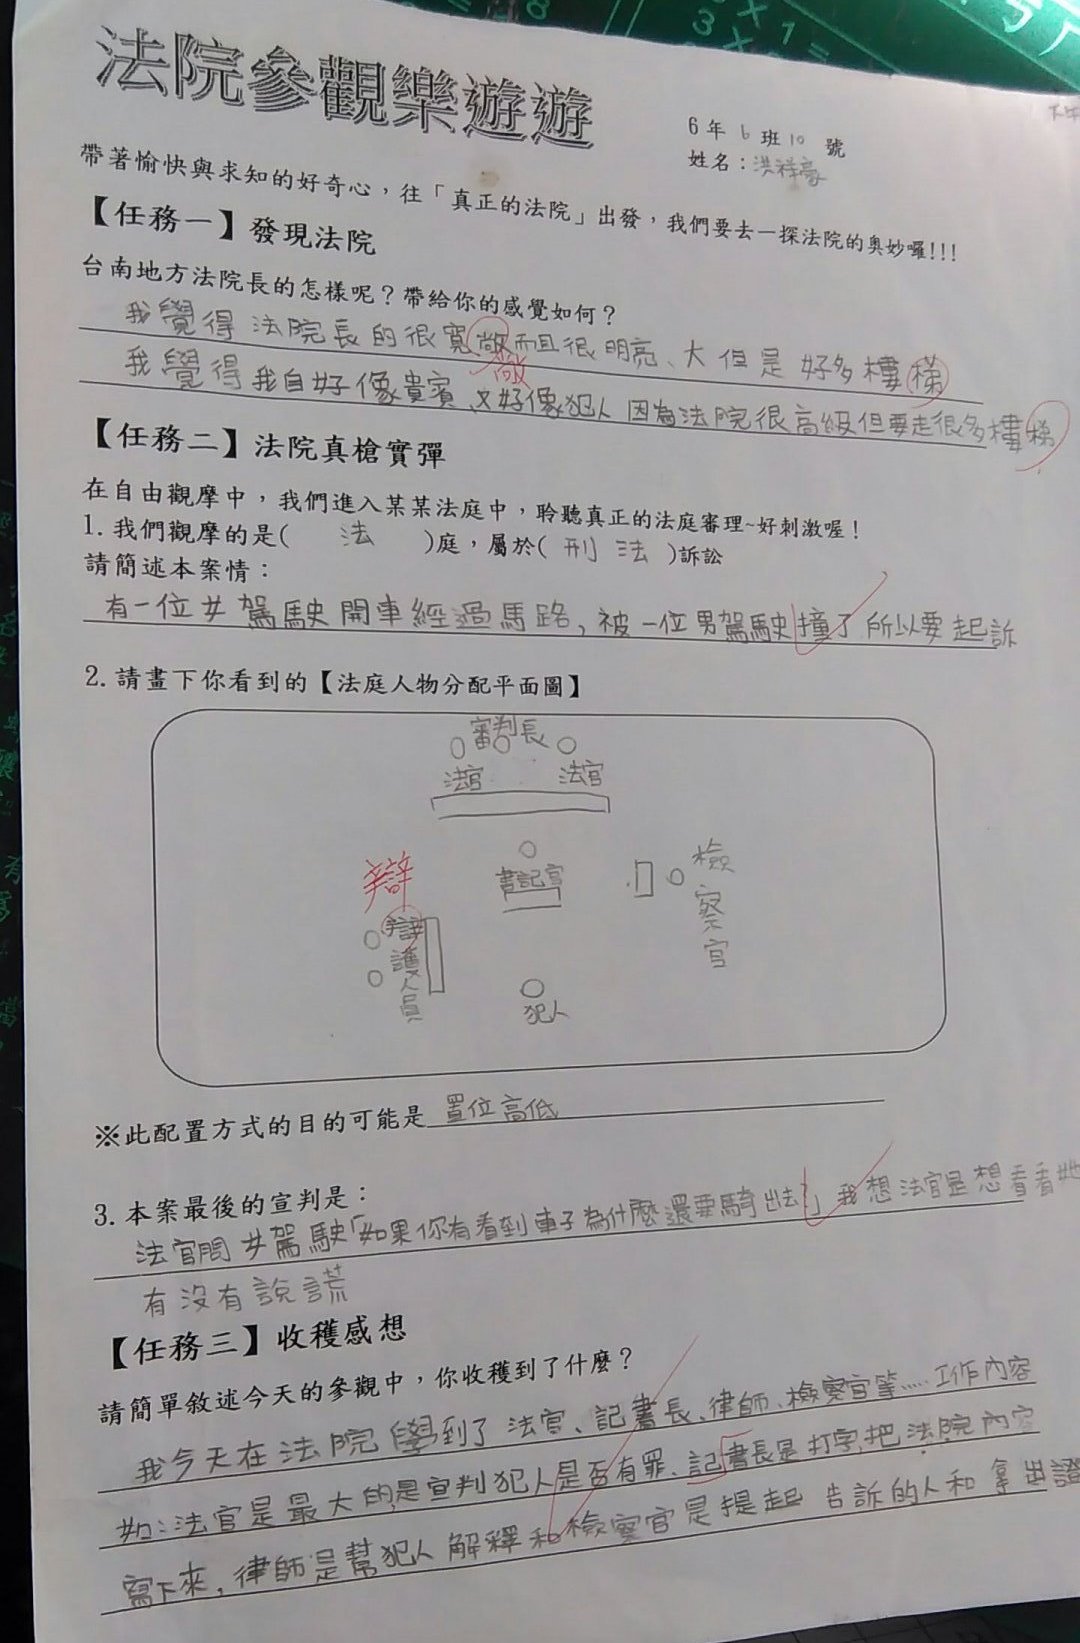 法院參觀樂遊遊
6年6班10號
姓名：洪祥豪
帶著愉快與求知的好奇心，往「真正的法院」出發，我們要去一探法院的奧妙囉!!!
【任務一】發現法院
台南地方法院長的怎樣呢？帶給你的感覺如何？
我覺得法院長的很寬敞而且很明亮、大但是好多樓梯
敞
我覺得我自好像貴賓、又好像犯人因為法院很高級但要走很多樓梯
【任務二】法院真槍實彈
在自由觀摩中，我們進入某某法庭中，聆聽真正的法庭審理~好刺激喔！
1. 我們觀摩的是( 法 )庭，屬於( 刑法 )訴訟
請簡述本案情：
有一位女駕駛開車經過馬路，被一位男駕駛撞了所以要起訴
2. 請畫下你看到的【法庭人物分配平面圖】
審判長
法官 法官
書記官
檢察官
辯
辯護人員
犯人
※此配置方式的目的可能是 置位高低
3. 本案最後的宣判是：
法官問女駕駛「如果你有看到車子為什麼還要騎出去?」我想法官是想看看她
有沒有說謊
【任務三】收穫感想
請簡單敘述今天的參觀中，你收穫到了什麼？
我今天在法院學到了法官、記書長、律師、檢察官等.....工作內容
如:法官是最大的,是宣判犯人是否有罪、記書長是打字,把法院內容
寫下來，律師是幫犯人解釋和檢察官是提起告訴的人和拿出證